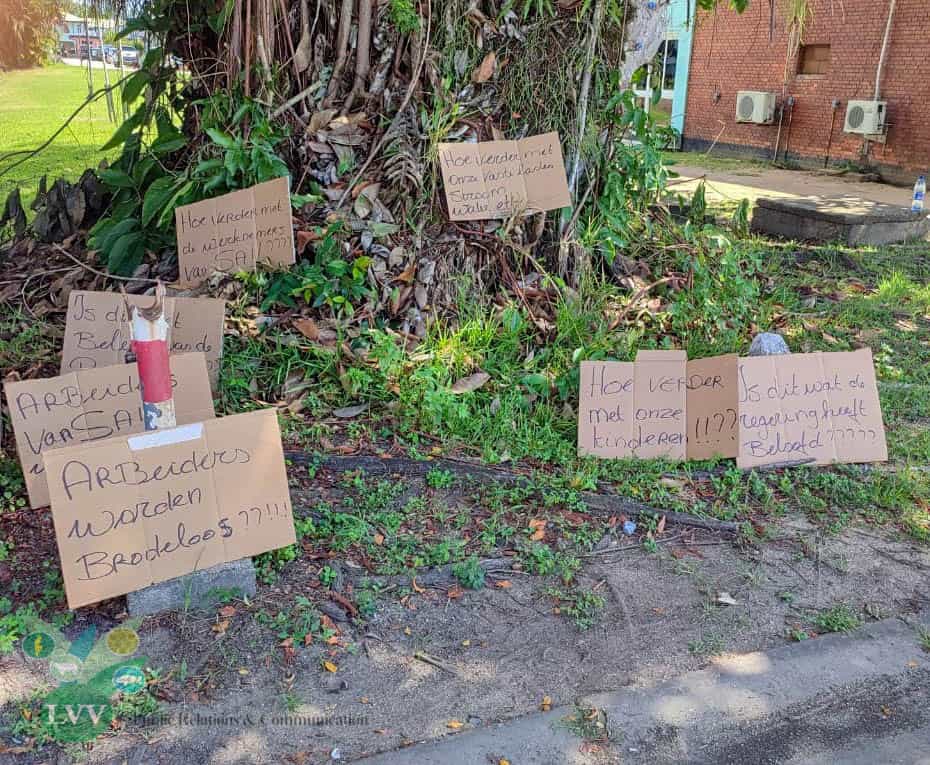 Hoe Verder met
de werknemers
Van SAI ????
Hoe Verder met
Onze Vaste lasten
Stroom
Water etc
Is dit wat
Belee
ARBeiders
Van SAI
ARBeiders
worden
Brodeloos ??!!!
Hoe VERDER
Met onze
kinderen !!??
Is dit wat de
regering heeft
Beloofd ?????
LVV
Public Relations & Communication